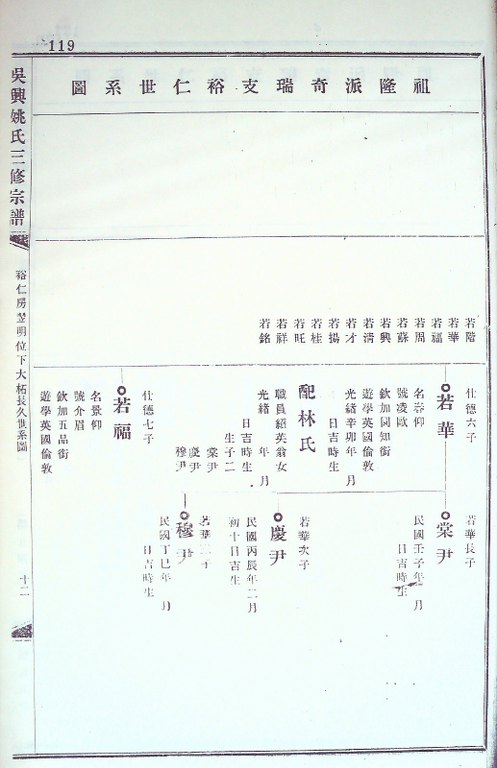 119
祖隆派奇瑞支裕仁世系圖
吳興姚氏三修宗譜
裕仁房翌明位下大柘長久世系圖
十二
若階
若華
若福
若周
若蘇
若興
若清
若才
若揚
若桂
若旺
若祥
若銘
仕德六子
若華
名春仰
號凌歐
欽加同知銜
遊學英國倫敦
光緒辛卯年 月
日吉時生
配林氏
職員紹英翁女
光緒 年 月
日吉時生
生子二
棠尹
慶尹
穆尹
仕德七子
若福
名景仰
號介眉
欽加五品銜
遊學英國倫敦
若華長子
棠尹
民國壬子年 月
日吉時生
若華次子
慶尹
民國丙辰年二月
初十日吉生
若華三子
穆尹
民國丁巳年 月
日吉時生